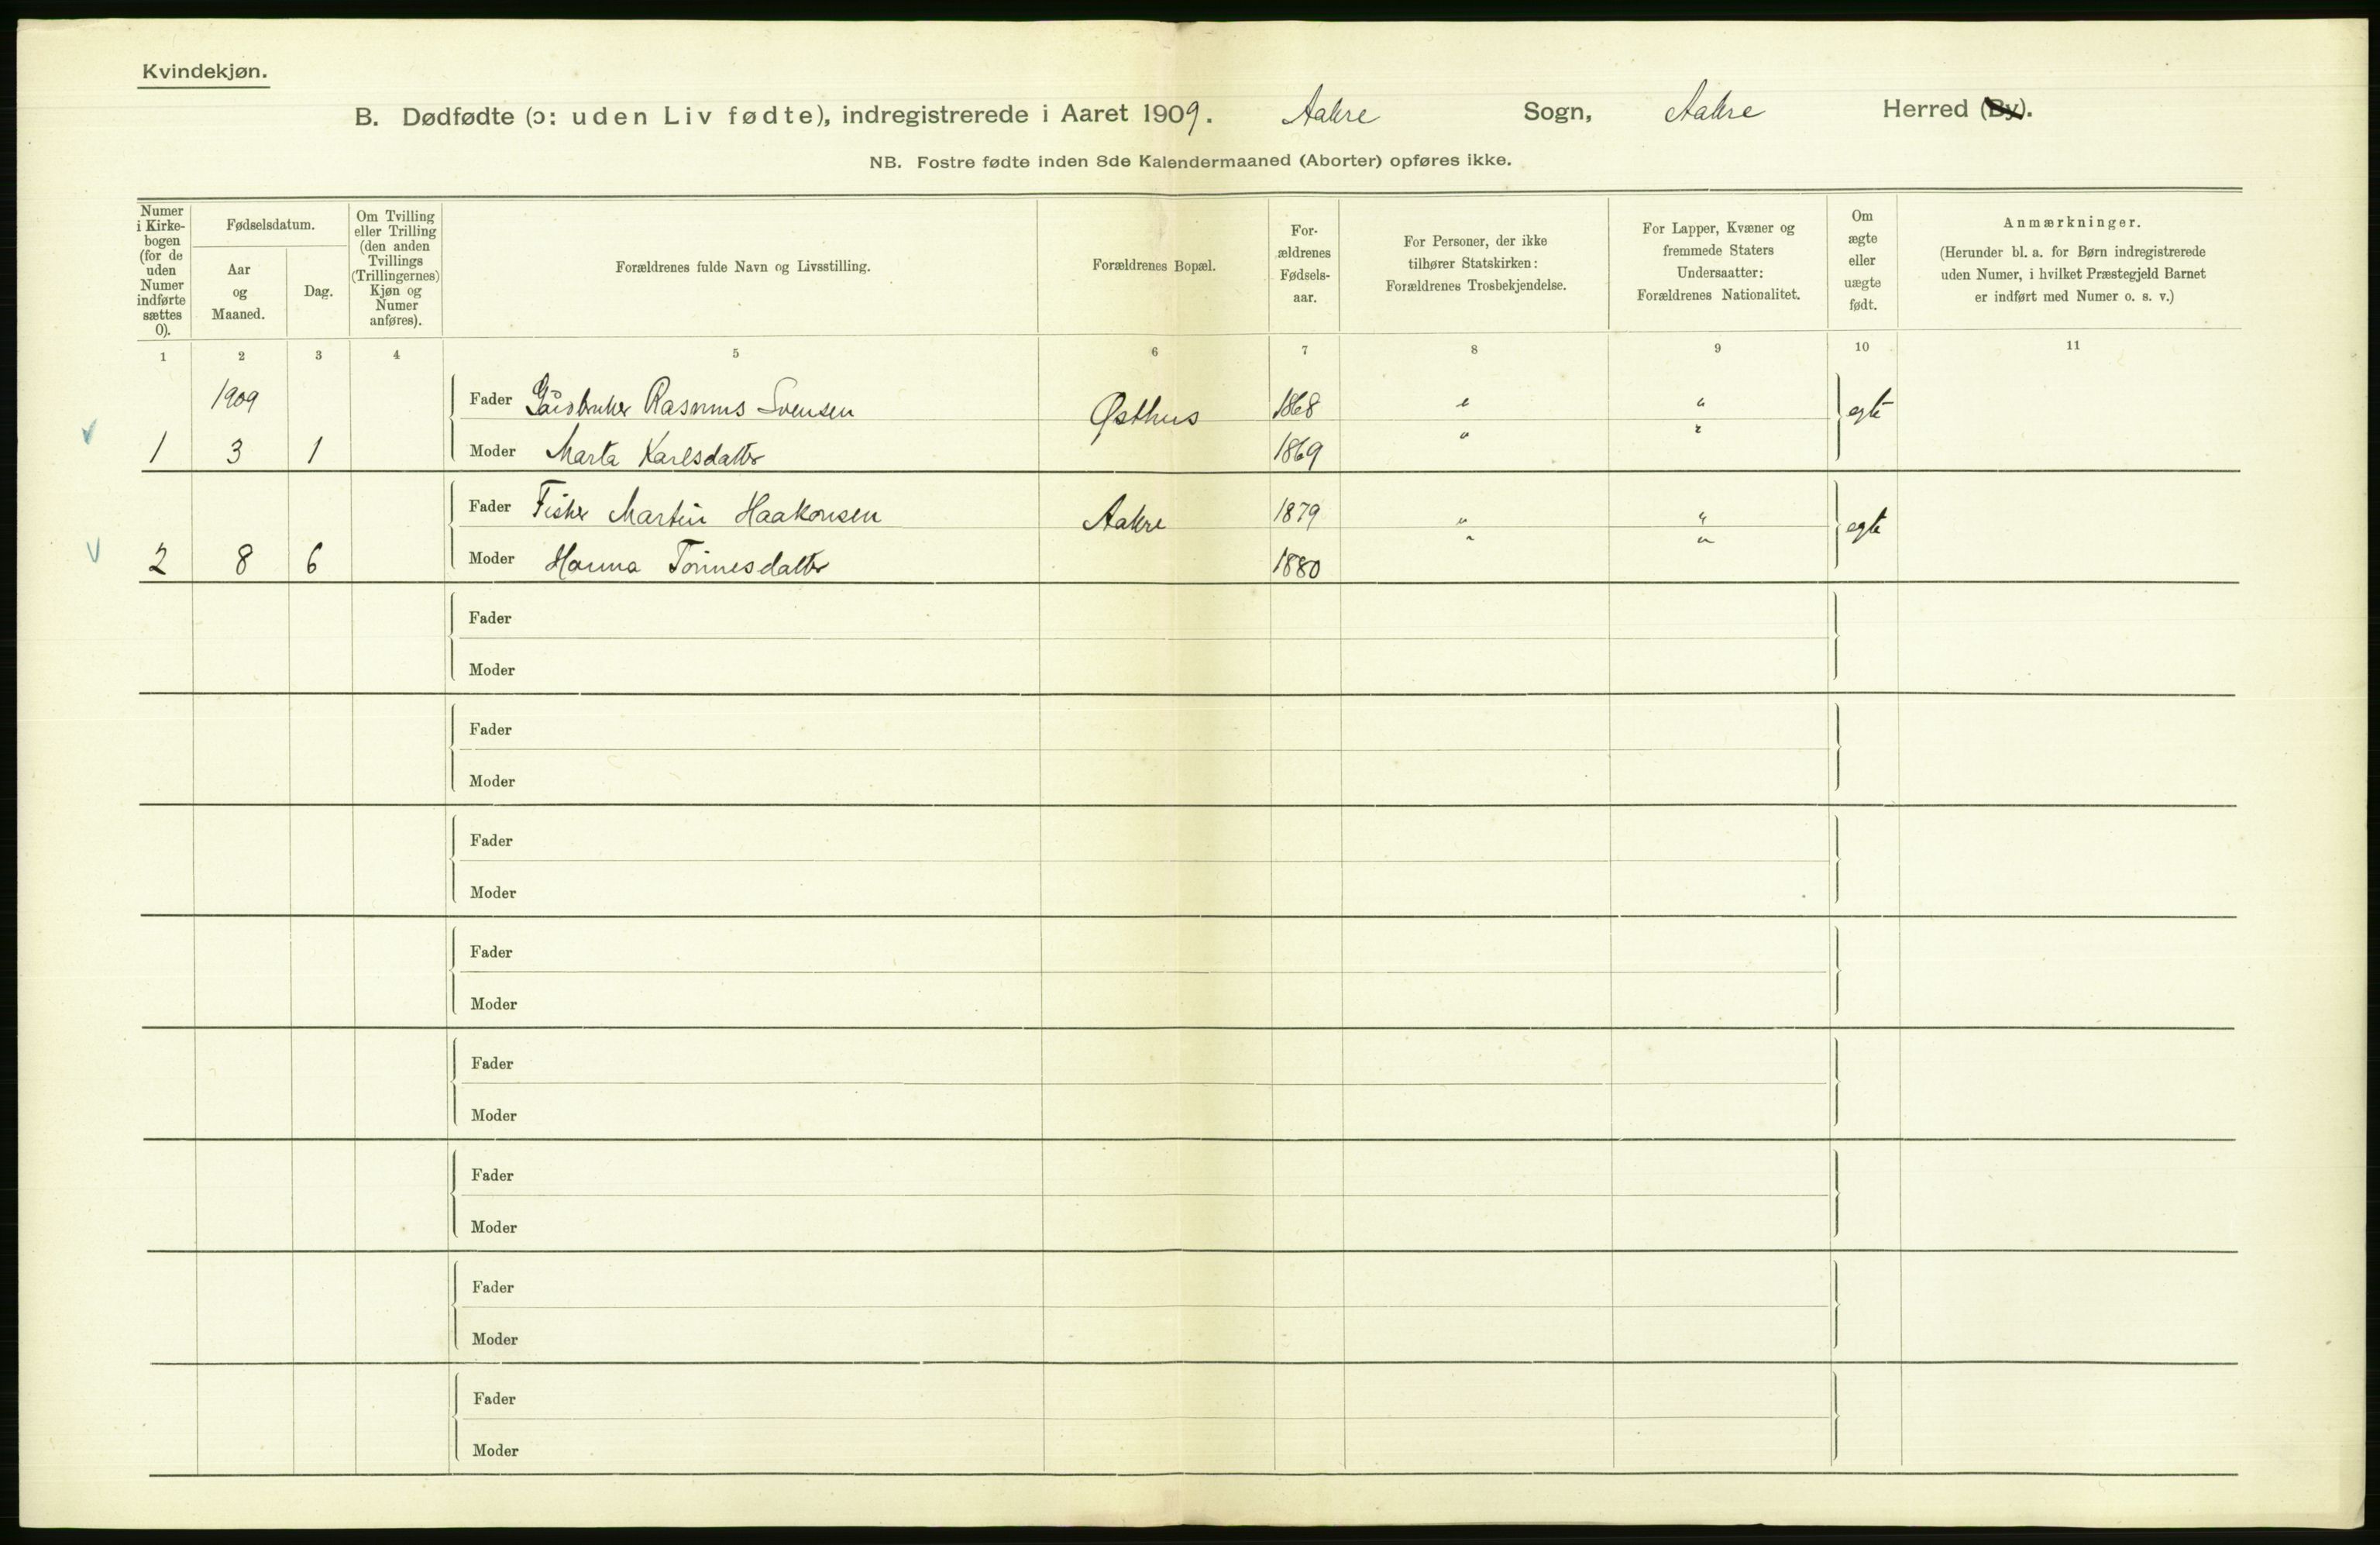 Kvindekjøn.
B. Dødfødte (ɔ: uden Liv fødte), indregistrerede i Aaret 1909. Aakre Sogn, Aakre Herred (By).
NB. Fostre fødte inden 8de Kalendermaaned (Aborter) opføres ikke.
Numer i Kirke-bogen (for de uden Numer indførte sættes 0).
Fødselsdatum.
Aar og Maaned.
Dag.
Om Tvilling eller Trilling (den anden Tvillings (Trillingernes) Kjøn og Numer anføres).
Forældrenes fulde Navn og Livsstilling.
Forældrenes Bopæl.
For-ældrenes Fødsels-aar.
For Personer, der ikke tilhører Statskirken: Forældrenes Trosbekjendelse.
For Lapper, Kvæner og fremmede Staters Undersaatter: Forældrenes Nationalitet.
Om ægte eller uægte født.
Anmærkninger.
(Herunder bl. a. for Børn indregistrerede uden Numer, i hvilket Præstegjeld Barnet er indført med Numer o. s. v.)
1 2 3 4 5 6 7 8 9 10 11
1909 Fader Rasmus Svensen Østhus 1868 " " egte
1 3 1 Moder Marta Karlsdatter 1869 " "
Fader Fisker Martin Haakonsen Aakre 1879 " " egte
2 8 6 Moder Hanna Tønnesdatter 1880 " "
Fader
Moder
Fader
Moder
Fader
Moder
Fader
Moder
Fader
Moder
Fader
Moder
Fader
Moder
Fader
Moder